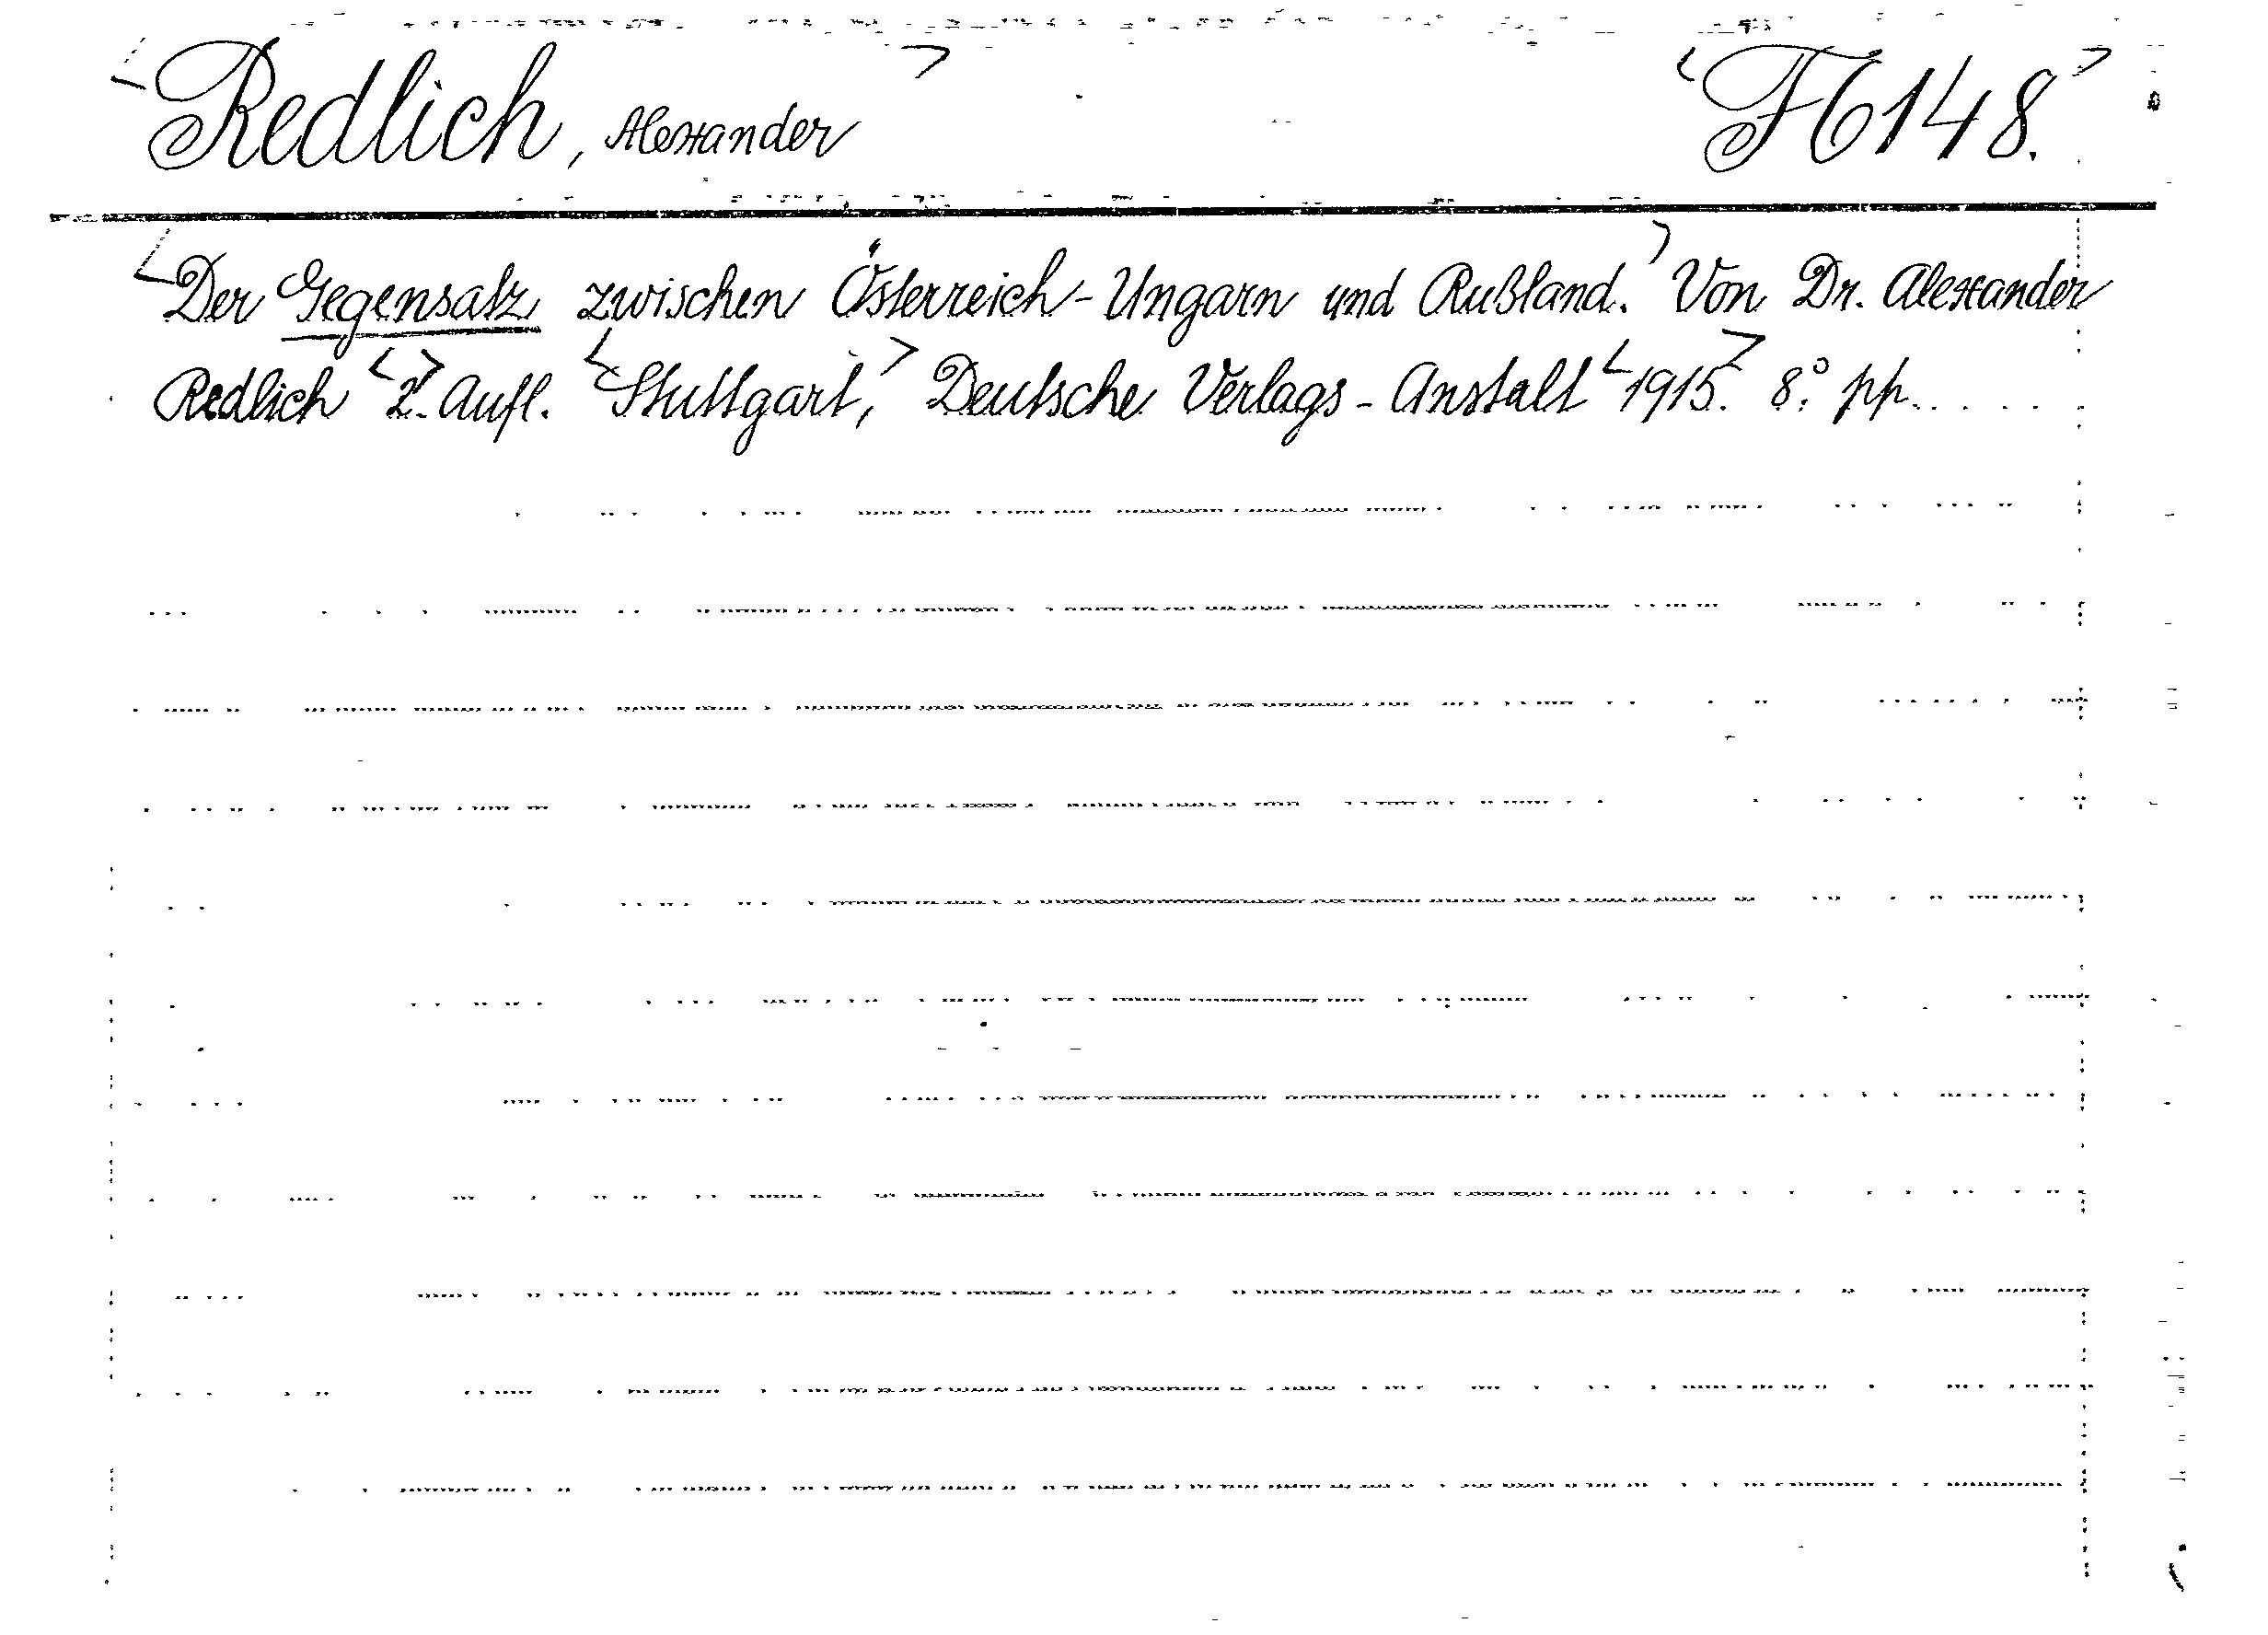 <Redlich, Alexander> <F6148.>
<Der Gegensatz zwischen Österreich-Ungarn und Rußland.> Von Dr. Alexander
Redlich <2.> Aufl. <Stuttgart,> Deutsche Verlags-Anstalt <1915.> 8.° pp......